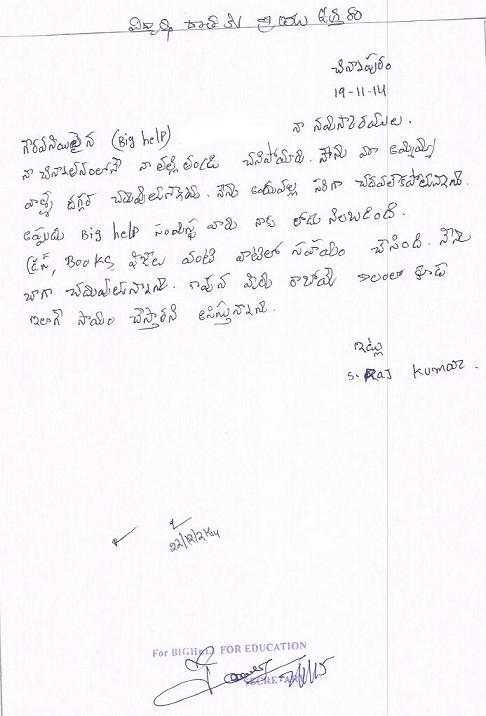 విద్యార్థి దాతకు వ్రాయు ఉత్తరం
చినాపురం
19-11-14
గౌరవనియులైన (Big help) నా నమస్కారములు.
నా చిన్నతనంలోనే నా తల్లి తండ్రి చనిపోయారు. నేను మా అమ్మమ్మ
వాళ్ళ దగ్గర చదువుతున్నాను. నేను అందువల్ల సరిగా చదవలేకపోతున్నాను.
అప్పుడు Big help సంస్థ వారు నాకు తోడు నిలబడింది.
డ్రస్, Books, ఫీజులు వంటి వాటిలో సహాయం చేసింది. నేను
బాగా చదువుతున్నాను. కావున మీరు రాబోయే కాలంలో కూడ
ఇలాగే సాయం చేస్తారని ఆశిస్తున్నాను.
ఇట్లు
S. Raj Kumar.
For BIGHelp FOR EDUCATION
SECRETARY